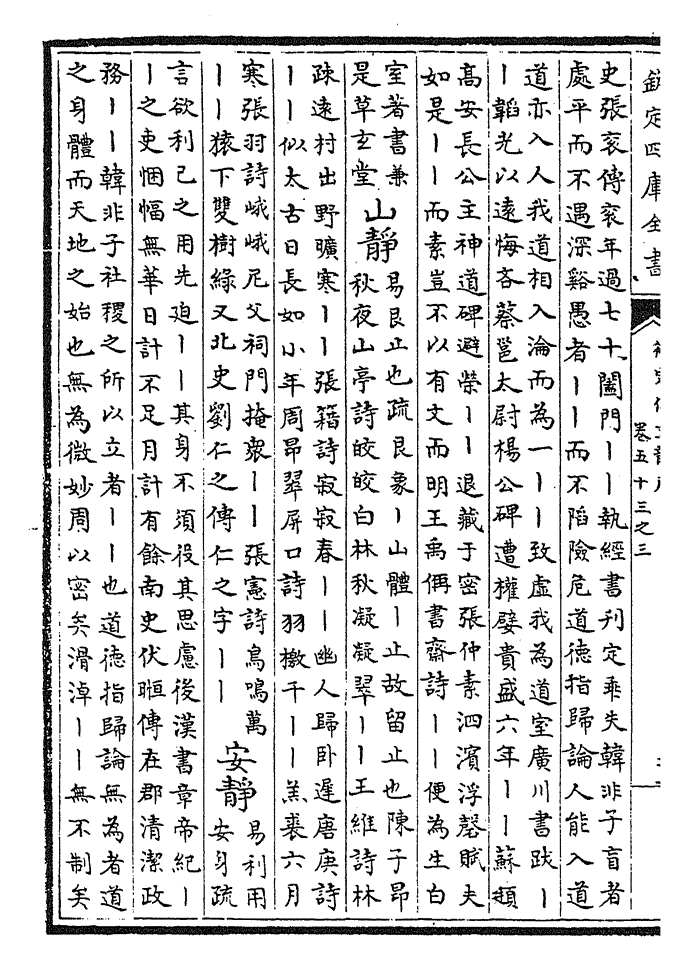 欽定四庫全書
卷五十三之三
史張衮傳衮年過七十闔門丨丨執經書刊定乖失韓非子盲者
處平而不遇深谿愚者丨丨而不陷險危道德指歸論人能入道
道亦入人我道相入淪而為一丨丨致虛我為道室廣川書跋丨
丨韜光以遠悔吝蔡邕太尉楊公碑遭權嬖貴盛六年丨丨蘇頲
髙安長公主神道碑避榮丨丨退藏于密張仲素泗濱浮磬賦夫
如是丨丨而素豈不以有文而明王禹偁書齋詩丨丨便為生白
室著書兼
是草玄堂
山靜
易艮止也疏艮象丨山體丨止故留止也陳子昂
秋夜山亭詩皎皎白林秋凝凝翠丨丨王維詩林
疎遠村出野曠寒丨丨張籍詩寂寂春丨丨幽人歸卧遲唐庚詩
丨丨似太古日長如小年周昂翠屏口詩羽檄千丨丨羔裘六月
寒張羽詩峨峨尼父祠門掩衆丨丨張憲詩鳥鳴萬
丨丨猿下雙樹綠又北史劉仁之傳仁之字丨丨
安靜
易利用
安身疏
言欲利己之用先廹丨丨其身不須役其思慮後漢書章帝紀丨
丨之吏悃愊無華日計不足月計有餘南史伏暅傳在郡清潔政
務丨丨韓非子社稷之所以立者丨丨也道德指歸論無為者道
之身體而天地之始也無為微妙周以密矣滑淖丨丨無不制矣